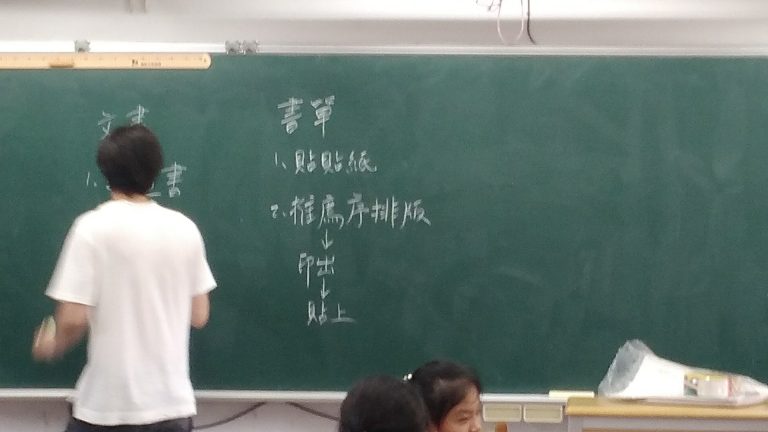 文書
1、 書
書單
1、貼貼紙
2、推薦序排版
↓
印出
↓
貼上